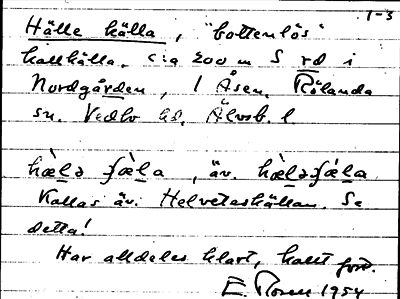 1-3
Hälle källa, "bottenlös"
kallkälla. c:a 200 m S rd i
Nordgården, 1 Åsen. Rölanda
sn. Vedbo hd. Älvsb. l
hæ̀lə ʃæ̀la, äv. hæ̀lə-ʃæ̀la
Kallas äv. Helveteskällan. Se
detta!
Har alldeles klart, kallt
E. 1954